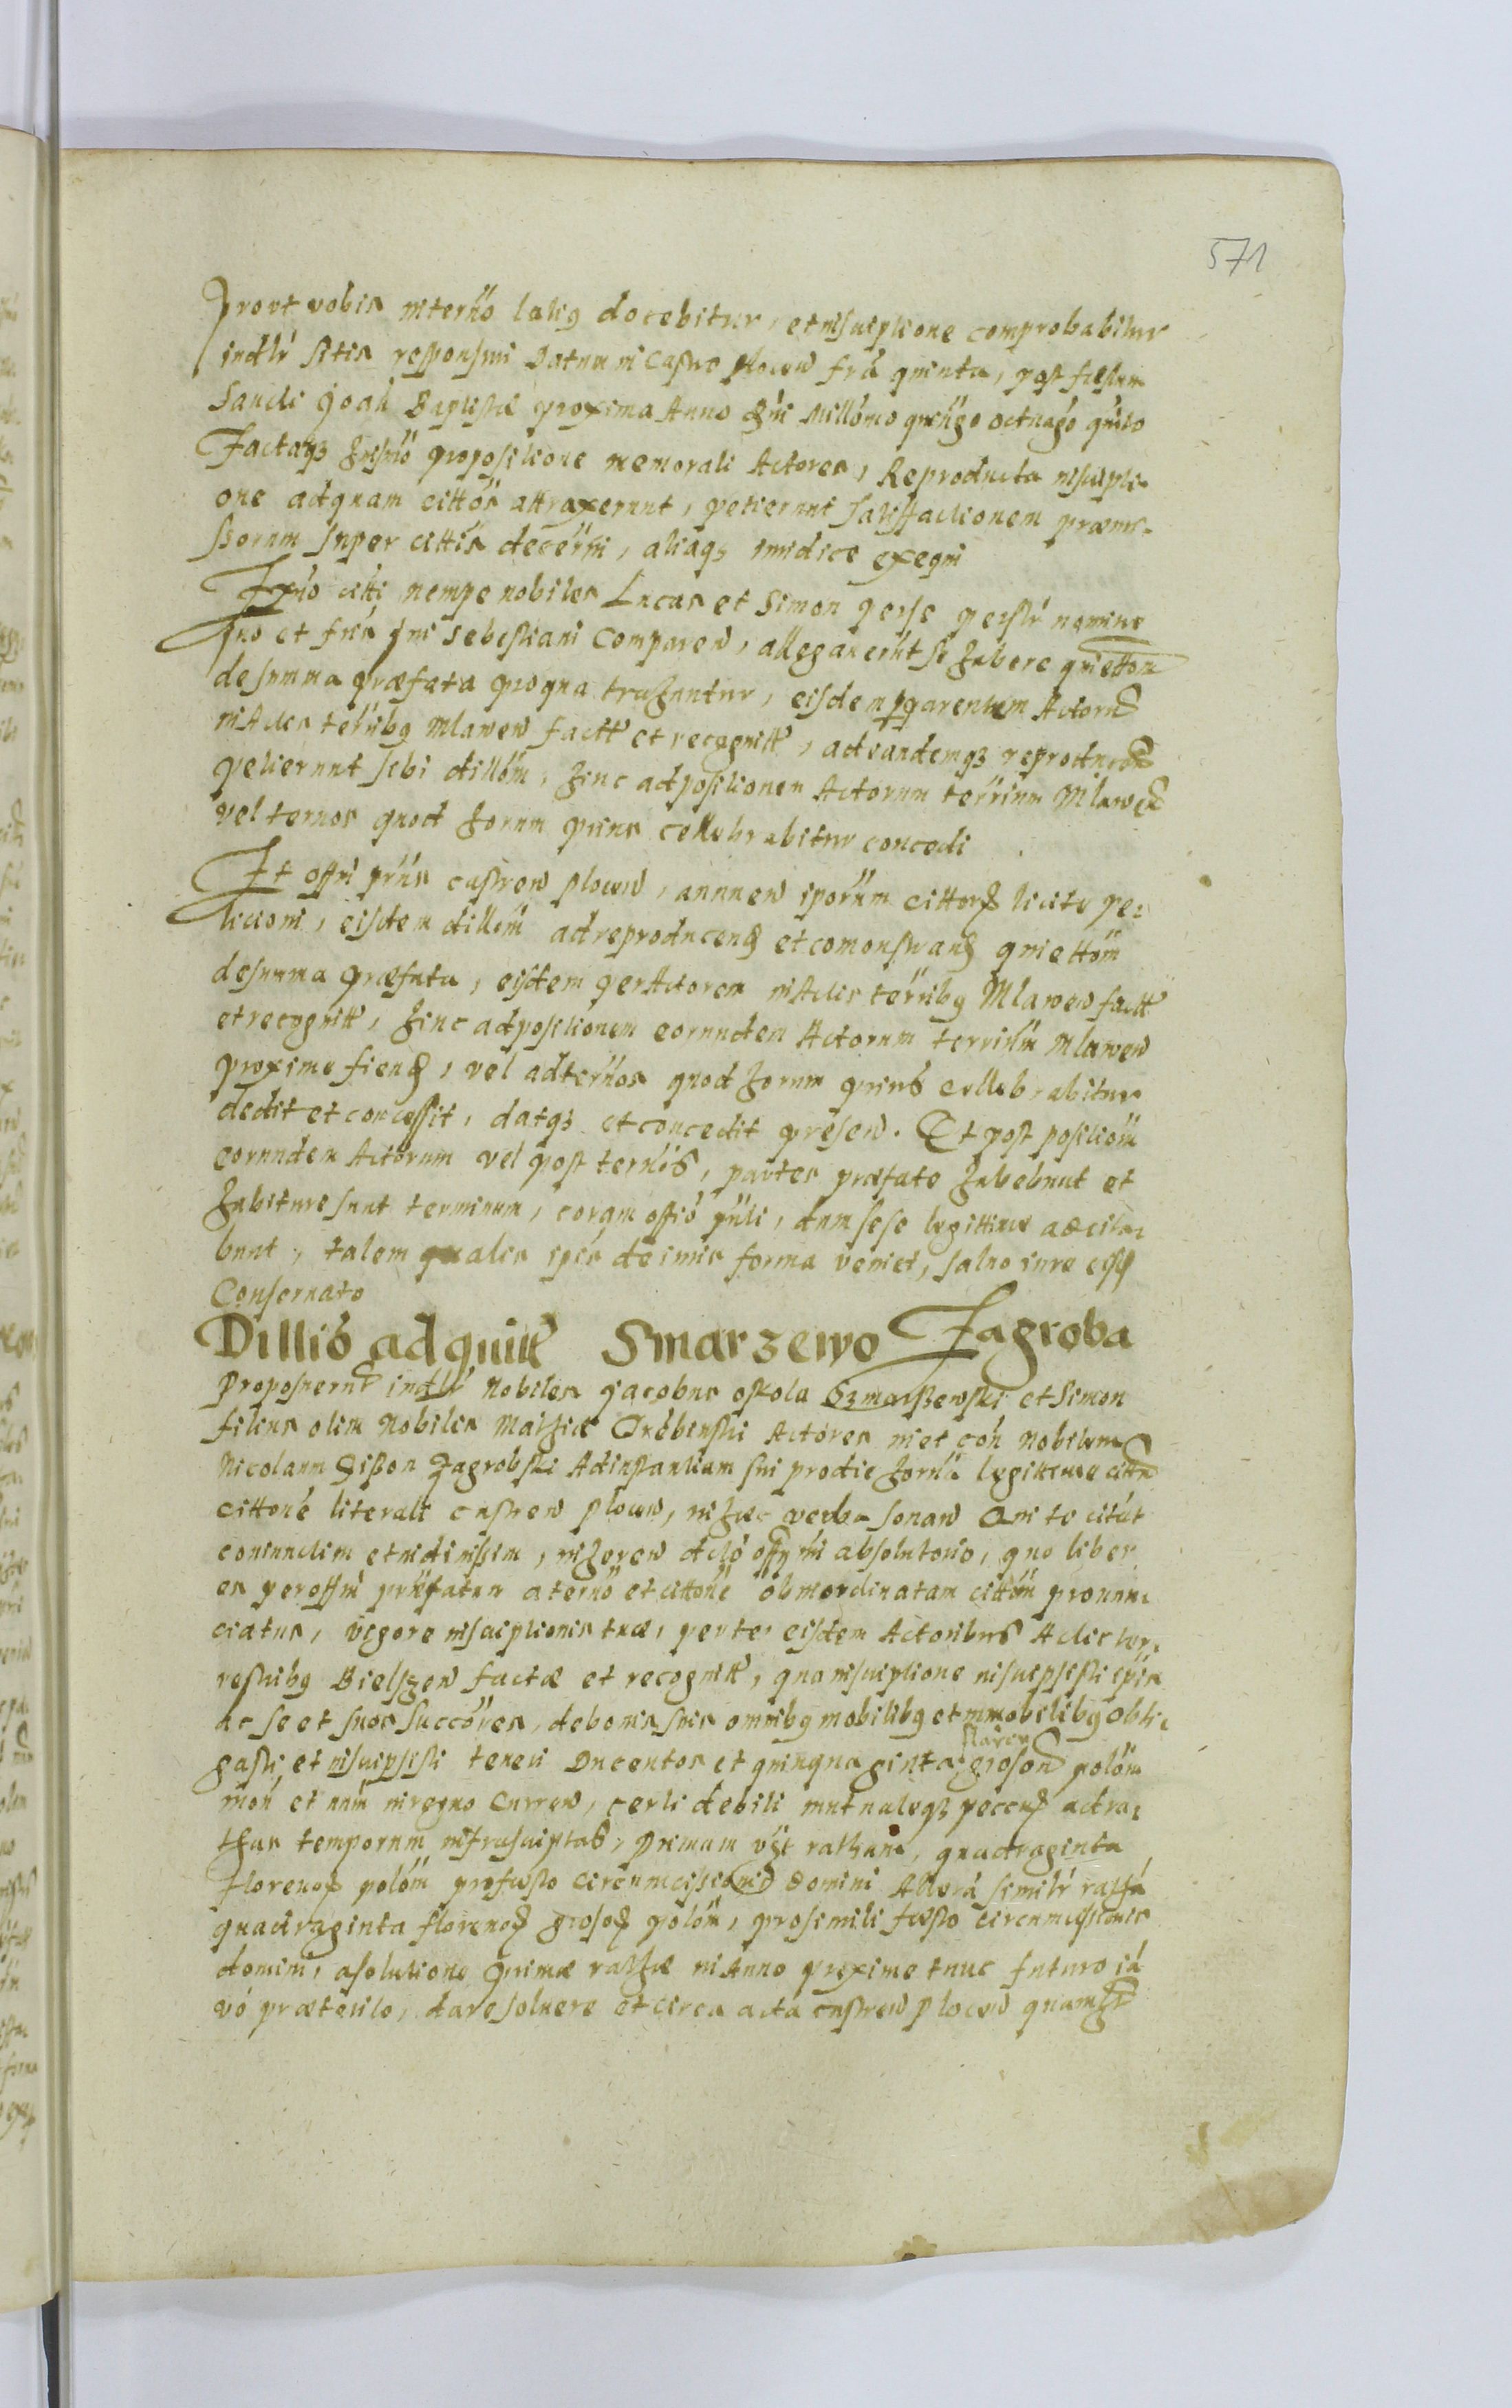 571
Prout vobis in terno latiq docebitur, et inscriptione comprobabitur
indlr sitis responsuri Datum in Castro plocen fra quinta, post festum
Sancti Joah Baptistæ proxima Anno dni Millimo quingo octuago quito
Factaqz hmoi propositione memorati Actores, Reproducta inscripti-
one ad quam cittos attraxerunt, petierunt satisfactionem præmi-
ssorum super cittis decerni, aliaqz iuridice exequi
Exho citti nempe nobiles Lucas et Simon per se psltr nomine
suo et fris sui Sebestiani Comparen, allegaverunt se habere quiettom
de summa præfata pro qua trahuntur, eisdem per parentem Actorum
in Actis ternbq Mlaven factt et recognitt, ad eandemqz reproducend
petierunt sibi dillom, hinc ad positionem Actorum terrium Mlawen
vel ternos quod horum prius cellebrabitur concedi
Et offm pns castren plocen, annuen iporum cittorz licite pe-
ticioni, eisdem dillom ad reproducend et comonstrand quiettom
de summa præfata, eisdem per Actorem in Actis terribq Mlawen factt
et recognitt, hinc ad positionem eorundem Actorum terrium Mlawen
proxime fiend, vel ad ternos quod horum prius cellebrabitur
dedit et concessit, datqz et concedit presen. Et post positiom
eorundem Actorum vel post ternos, partes præfate habebunt et
habiture sunt terminum, coram offio pnti, dum sese legittime adcita-
bunt, talem qualis ipis de iuris forma veniet, salvo iure eisd
Conservato
Dillio ad quitt Smarzewo Zagroba
Proposuerunt indlr Nobiles Jacobus oskola Szmarszewski et Simon
filius olim Nobilis Mathiæ Trebinski Actores in et con Nobilem
Nicolaum Gißon Zagrobski Ad instantiam sui pro die horna legittime citt
cittone literali castren plocen, in hæc verba sonan Qui te citat
coniunctim et in divisim, inheren dcto offy ni absolutorio, quo liber
es per offm præfatum a terno et cittone ob inordinatam cittom pronun-
ciatus, vigore inscriptionis tuæ, per te eisdem Actoribus Actis ter-
restribq Bielszen factæ et recognitt, qua inscriptione inscripsisti ipis
ac se et suos succores, de bonis suis omnibq mobilibq et immobilibq obli-
gasti et inscripsisti teneri Ducentos et quinquaginta floren grosord polom
mon et num in regno curren, certi debiti mutualeqz peccuz ad ra-
thas temporum infrascriptas, Primam vzt ratham, quadraginta
florenoz polom pro festo circumcissionis Domini Altera similr ratha
quadraginta florenoz grosoz polom, pro simili festo circumcisionis
domini, a solutione primæ rathæ in Anno proxime tunc futuro ia
vo præterito, dare solvere et circa acta castren plocen